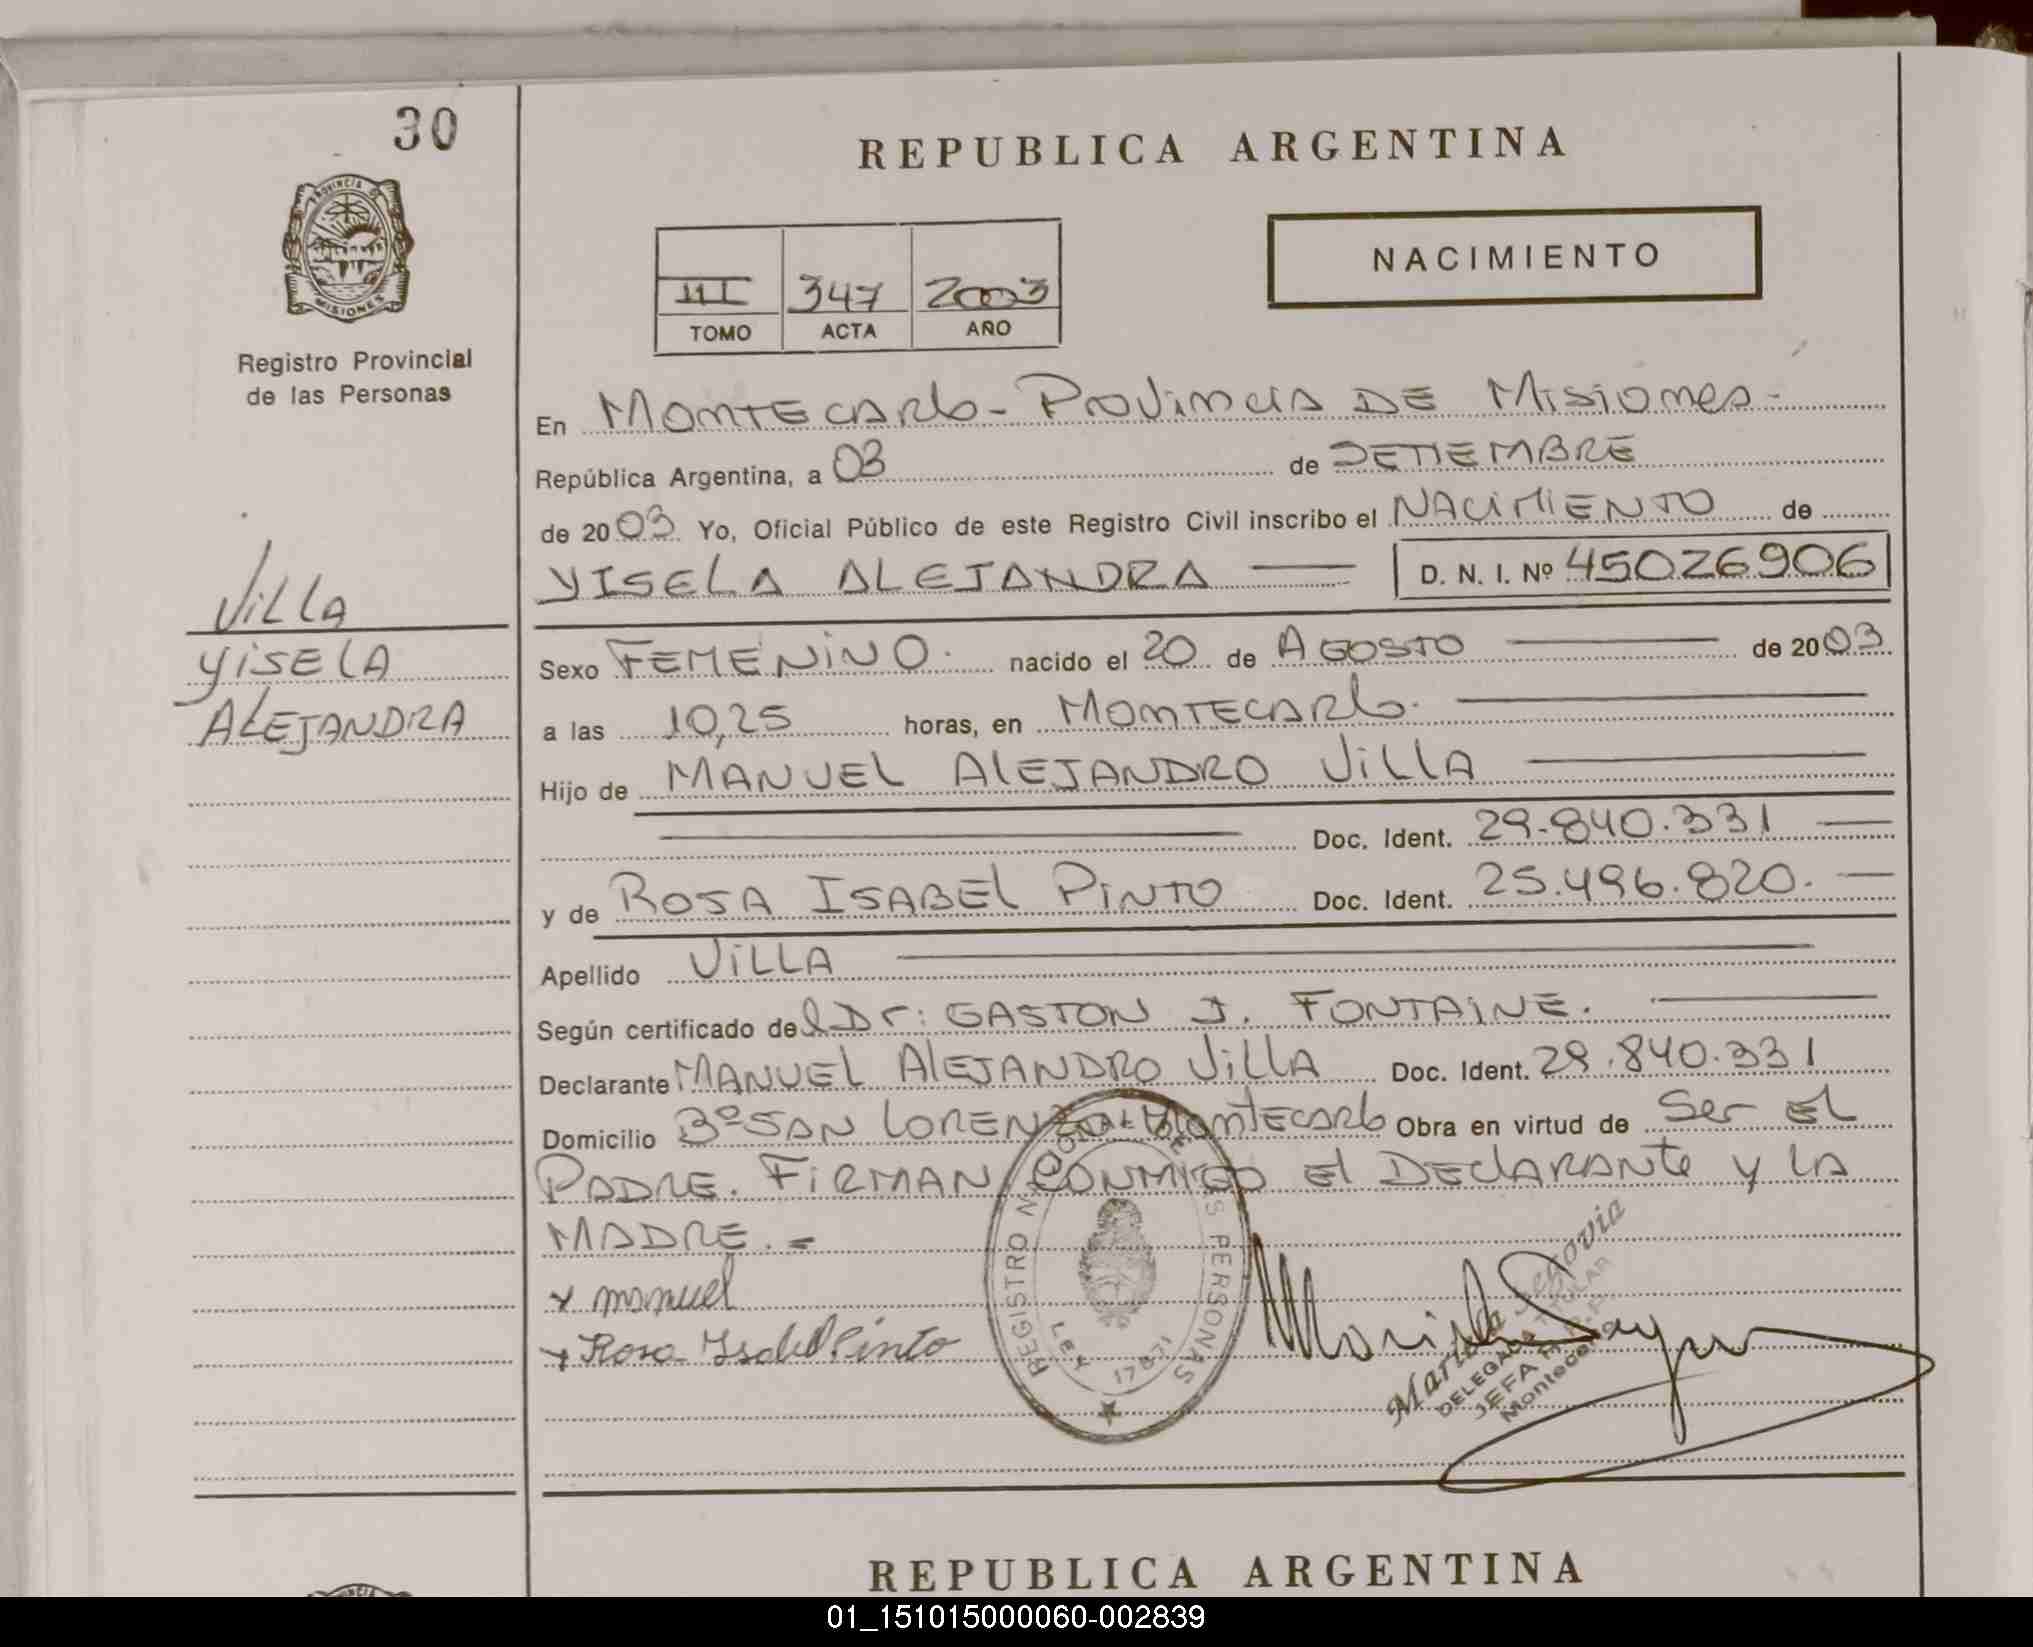 30
REPUBLICA ARGENTINA
PROVINCIA DE
MISIONES
Registro Provincial
de las Personas
III 347 2003
TOMO ACTA AÑO
NACIMIENTO
En MONTECARlo - PROVINCIA DE MISIONES -
República Argentina, a 03 de SETIEMBRE
de 2003 Yo, Oficial Público de este Registro Civil inscribo el NACIMIENTO de
YISELA ALEJANDRA D. N. I. Nº 45026906
VILLA
YISELA
ALEJANDRA
Sexo FEMENINO. nacido el 20 de AGOSTO de 2003
a las 10,25 horas, en MONTECARlo.
Hijo de MANUEL AlEJANDRO VillA
Doc. Ident. 29.840.331
y de ROSA ISABEl PINTO Doc. Ident. 25.496.820.
Apellido VILLA
Según certificado del Dr: GASTON J. FONTAINE.
Declarante MANUEL AlEJANDRO VillA Doc. Ident. 29.840.331
Domicilio Bº SAN LORENZO - MontECARlo Obra en virtud de Ser El
PADRE. FIRMAN CONMIGO El DEClARANte y LA
MADRE. -
x manuel
x Rosa Isabel Pinto
REGISTRO NACIONAL DE LAS PERSONAS
Ley 17671
Mariela Segovia
DELEGADA TITULAR
JEFA
Montecarlo
REPUBLICA ARGENTINA
01_151015000060-002839